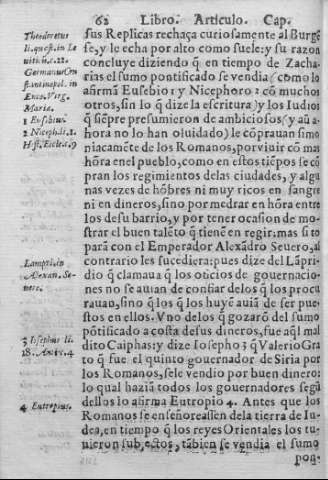 62 Libro. Articulo. Cap.
Theodoretus
li. quęst. in Le
uitic. c. 22.
Germanus Cōn
stantinopol. in
Enco. Virg.
Maria.
1 Eusebius.
2 Nicepho. li. 2.
Hist. Eccles. 9
Lampri. in
Alexan. Se-
uero.
3 Iosephus li.
18. Anti. c. 4
4 Eutropius.
sus Replicas rechaça curiosamente al Burgē
se, y le echa por alto como suele: y su razon
concluye diziendo q̄ en tiempo de Zacha-
rias el sumo pontificado se vendia (como lo
afirmā Eusebio 1 y Nicephoro 2 cō muchos
otros, sin lo q̄ dize la escritura) y los Iudios
q̄ siēpre presumieron de ambiciosos (y aū a
hora no lo han oluidado) le cōprauan simo
niacamēte de los Romanos, por viuir cō mas
hōra enel pueblo, como en estos tiēpos se cō
pran los regimientos delas ciudades, y algu
nas vezes de hōbres ni muy ricos en sangre
ni en dineros, sino por medrar en hōra entre
los desu barrio, y por tener ocasion de mo-
strar el buen talēto q̄ tienē en regir: mas si to
parā con el Emperador Alexādro Seuero, al
contrario les sucediera: pues dize del Lāpri-
dio q̄ clamaua q̄ los oficios de gouernacio-
nes no se auian de confiar delos q̄ los procu
rauan, sino q̄ los q̄ los huyē auiā de ser pue-
stos en ellos. Vno delos q̄ gozarō del sumo
pōtificado a costa de sus dineros, fue aq̄l mal
dito Caiphas: y dize Iosepho 3 q̄ Valerio Gra
to q̄ fue el quinto gouernador de Siria por
los Romanos, se le vendio por buen dinero:
lo qual haziā todos los gouernadores segū
dellos lo afirma Eutropio 4. Antes que los
Romanos se enseñoreassen dela tierra de Iu-
dea, en tiempo q̄ los reyes Orientales los tu-
uieron subiectos, tābien se vendia el sumo
pon-